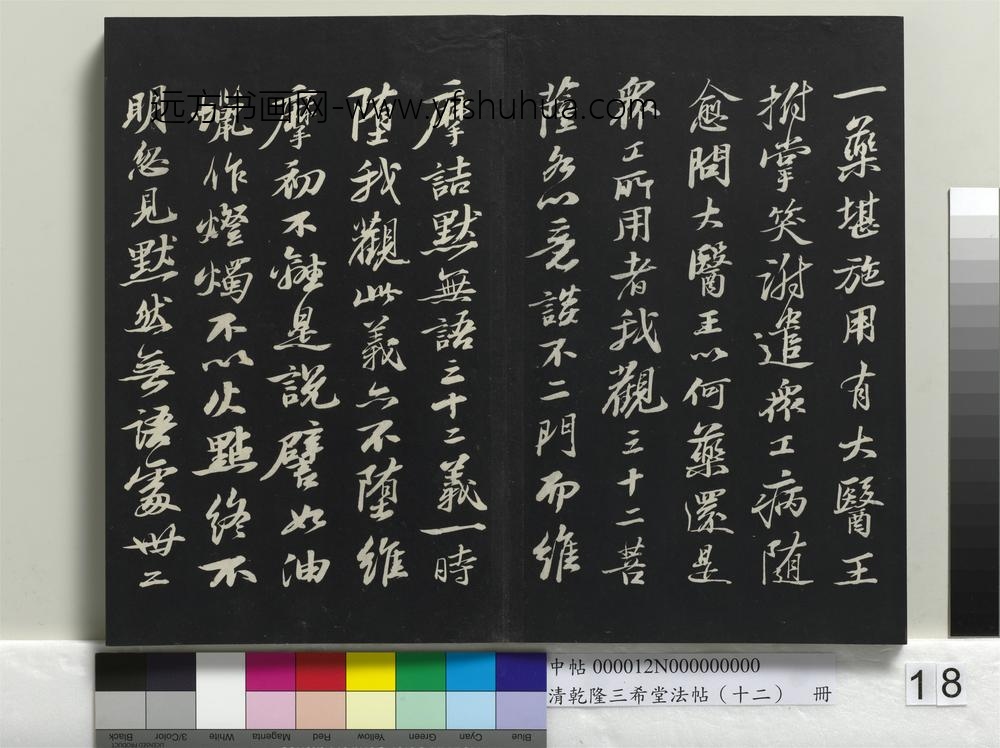 一藥堪施用有大醫王
拊掌笑謝遣衆工病随
愈問大醫王以何藥還是
衆工所用者我觀三十二菩
薩各以意談不二門而維
摩詰默無語三十二義一時
墮我觀此義亦不墮維
摩初不離是說譬如油
蠟作燈燭不以火點終不
明忽見默然無語處卅二
远方书画网-www.yfshuhua.com
中帖 000012N000000000
清乾隆三希堂法帖（十二） 冊
18
Black
3/Color
White
Magenta
Red
Yellow
Green
Cyan
Blue